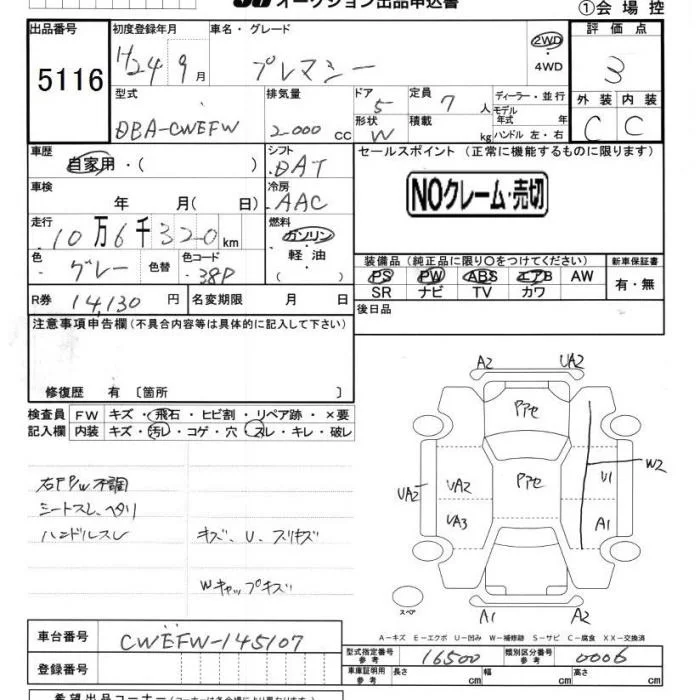 オークション出品申込書
①会場控
出品番号 5116
初度登録年月 H24 9月
車名・グレード プレマシー
2WD・4WD
評価点 3
外装 C 内装 C
型式 DBA-CWEFW
排気量 2000 cc
ドア 5 形状 W
定員 7人 積載 kg
ディーラー・並行
モデル年式 年式
ハンドル 左・右
車歴 自家用・( )
シフト DAT
セールスポイント (正常に機能するものに限ります)
NOクレーム・売切
車検 年 月( 日)
冷房 AAC
走行 10万6千320km
燃料 ガソリン・軽油・( )
色 グレー 色替 色コード 38P
装備品 (純正品に限り○をつけてください) 新車保証書
PS PW ABS エアB AW 有・無
SR ナビ TV カワ
R券 14,130円 名変期限 月 日
後日品
注意事項申告欄(不具合内容等は具体的に記入して下さい)
修復歴 有 〔箇所 〕
検査員記入欄 FW キズ・飛石・ヒビ割・リペア跡・×要
内装 キズ・汚レ・コゲ・穴・スレ・キレ・破レ
右FP/W不調
シートスレ、ヘタリ
ハンドルスレ キズ、U、スリキズ
Wキャップキズ
A2 UA2
Pアセ
W2
Pアセ
UA2 UA2 U1
UA3 A1
スペア
A1 A2
A-キズ E-エクボ U-凹み W-補修跡 S-サビ C-腐食 XX-交換済
車台番号 CWEFW-145107
型式指定番号 参考 16500 類別区分番号 参考 0006
登録番号
車庫証明用 参考 長さ cm 幅 cm 高さ cm
希望出品コーナー